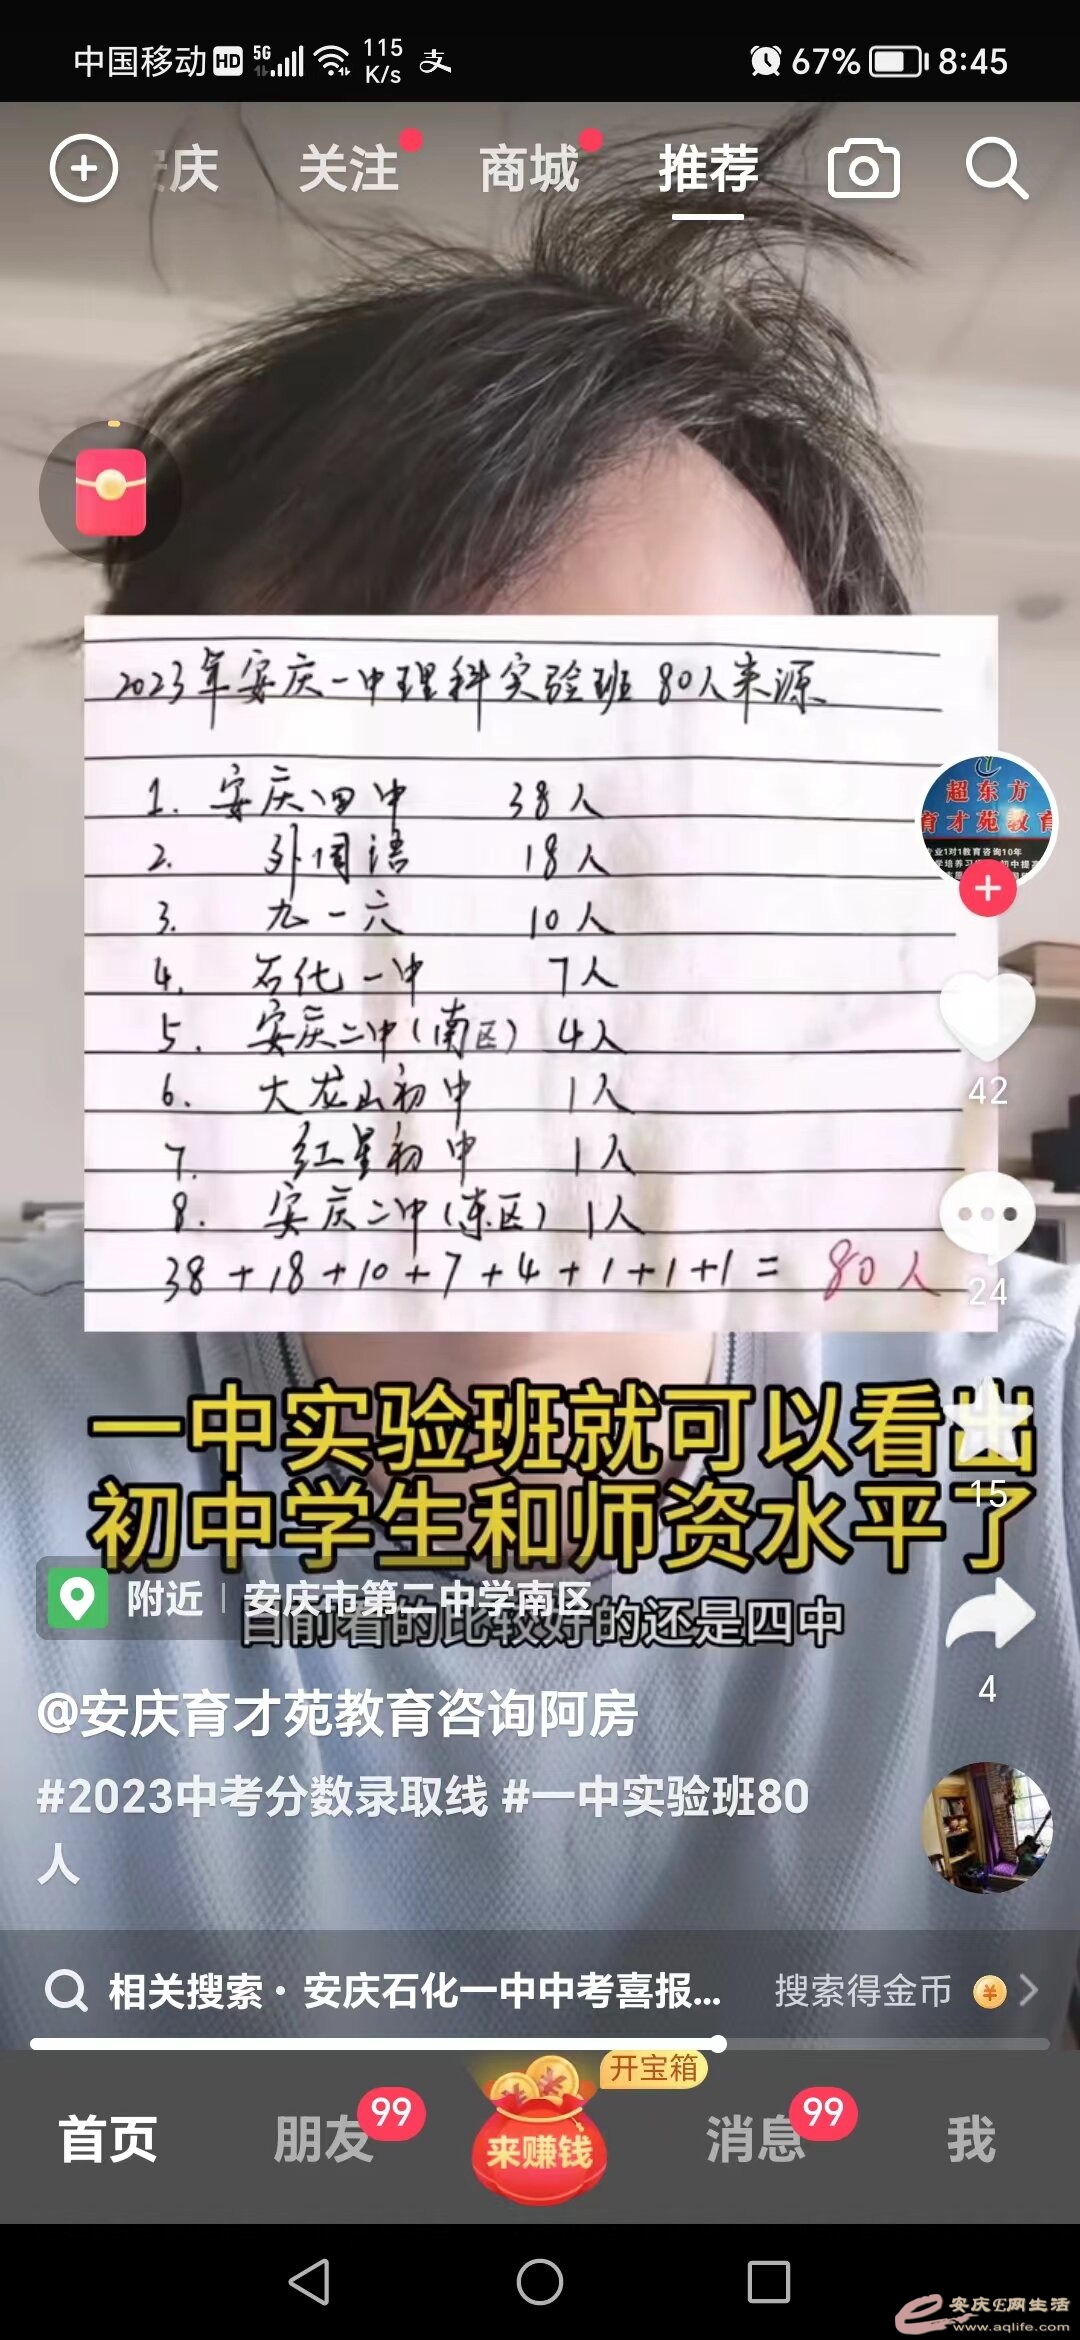 中国移动 HD 5G 115 K/s 支 67% 8:45
安庆 关注 商城 推荐
2023年安庆一中理科实验班 80人来源
1. 安庆四中 38人
2. 外国语 18人
3. 九一六 10人
4. 石化一中 7人
5. 安庆二中(南区) 4人
6. 大龙山初中 1人
7. 红星初中 1人
8. 安庆二中(东区) 1人
38+18+10+7+4+1+1+1= 80人
超东方
育才苑教育
专业1对1教育咨询10年
42
24
一中实验班就可以看出
15
初中学生和师资水平了
附近 | 安庆市第二中学南区
目前看的比较好的还是四中
4
@安庆育才苑教育咨询阿房
#2023中考分数录取线 #一中实验班80
人
相关搜索· 安庆石化一中中考喜报... 搜索得金币 ¥
开宝箱
首页 朋友 99 来赚钱 消息 99 我
e 安庆E网生活
www.aqlife.com